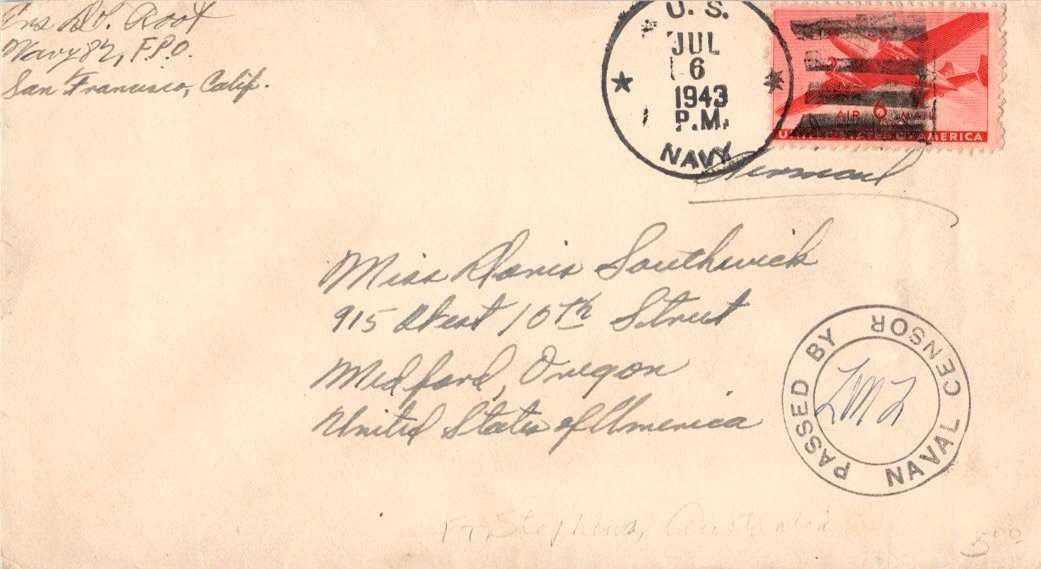 Ens D.S. Root
Navy 82, F.P.O.
San Francisco, Calif.
U. S.
JUL
6
1943
P.M.
NAVY
AIR 6 MAIL
UNITED STATES OF AMERICA
Airmail
Miss Doris Southwick
915 West 10th Street
Medford, Oregon
United States of America
PASSED BY NAVAL CENSOR
Pt. Stephens, Australia
500